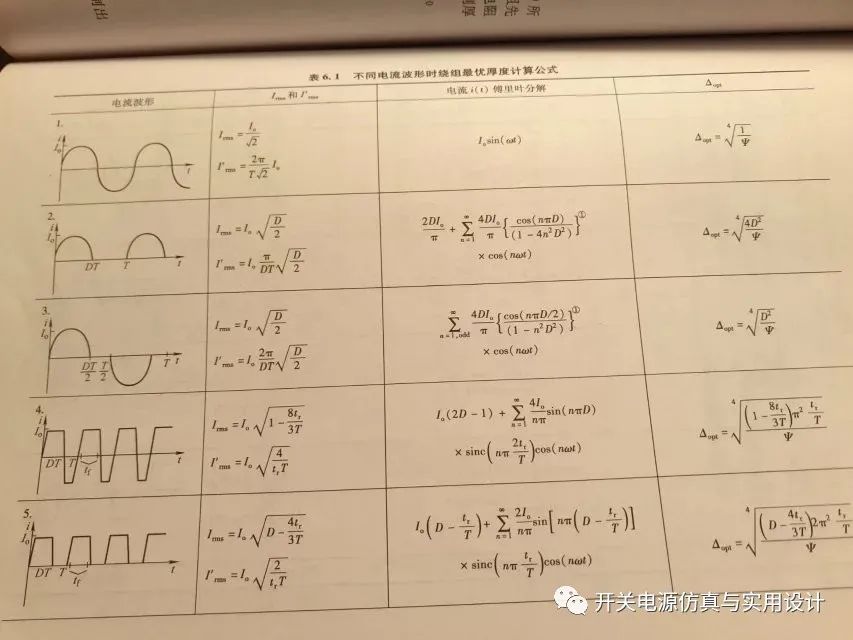 表 6.1 不同电流波形时绕组最优厚度计算公式
电流波形 I_rms 和 I'_rms 电流 i(t) 傅里叶分解 Δ_opt
1.
i
I_o
t
I_rms = I_o/√2
I'_rms = 2π/(T√2) I_o
I_o sin(ωt)
Δ_opt = ⁴√(1/Ψ)
2.
i
I_o
DT T t
I_rms = I_o √(D/2)
I'_rms = I_o π/(DT) √(D/2)
2DI_o/π + ∑_{n=1}^{∞} 4DI_o/π {cos(nπD)/(1 - 4n²D²)}^①
× cos(nωt)
Δ_opt = ⁴√(4D²/Ψ)
3.
i
I_o
DT/2 T/2 T t
I_rms = I_o √(D/2)
I'_rms = I_o 2π/(DT) √(D/2)
∑_{n=1,odd}^{∞} 4DI_o/π {cos(nπD/2)/(1 - n²D²)}^①
× cos(nωt)
Δ_opt = ⁴√(D²/Ψ)
4.
i
I_o
DT T t
t_r
I_rms = I_o √(1 - 8t_r/3T)
I'_rms = I_o √(4/(t_r T))
I_o(2D - 1) + ∑_{n=1}^{∞} 4I_o/nπ sin(nπD)
× sinc(nπ 2t_r/T) cos(nωt)
Δ_opt = ⁴√((1 - 8t_r/3T)π² t_r/T / Ψ)
5.
i
I_o
DT T t
t_r
I_rms = I_o √(D - 4t_r/3T)
I'_rms = I_o √(2/(t_r T))
I_o(D - t_r/T) + ∑_{n=1}^{∞} 2I_o/nπ sin[nπ(D - t_r/T)]
× sinc(nπ t_r/T) cos(nωt)
Δ_opt = ⁴√((D - 4t_r/3T)2π² t_r/T / Ψ)
开关电源仿真与实用设计